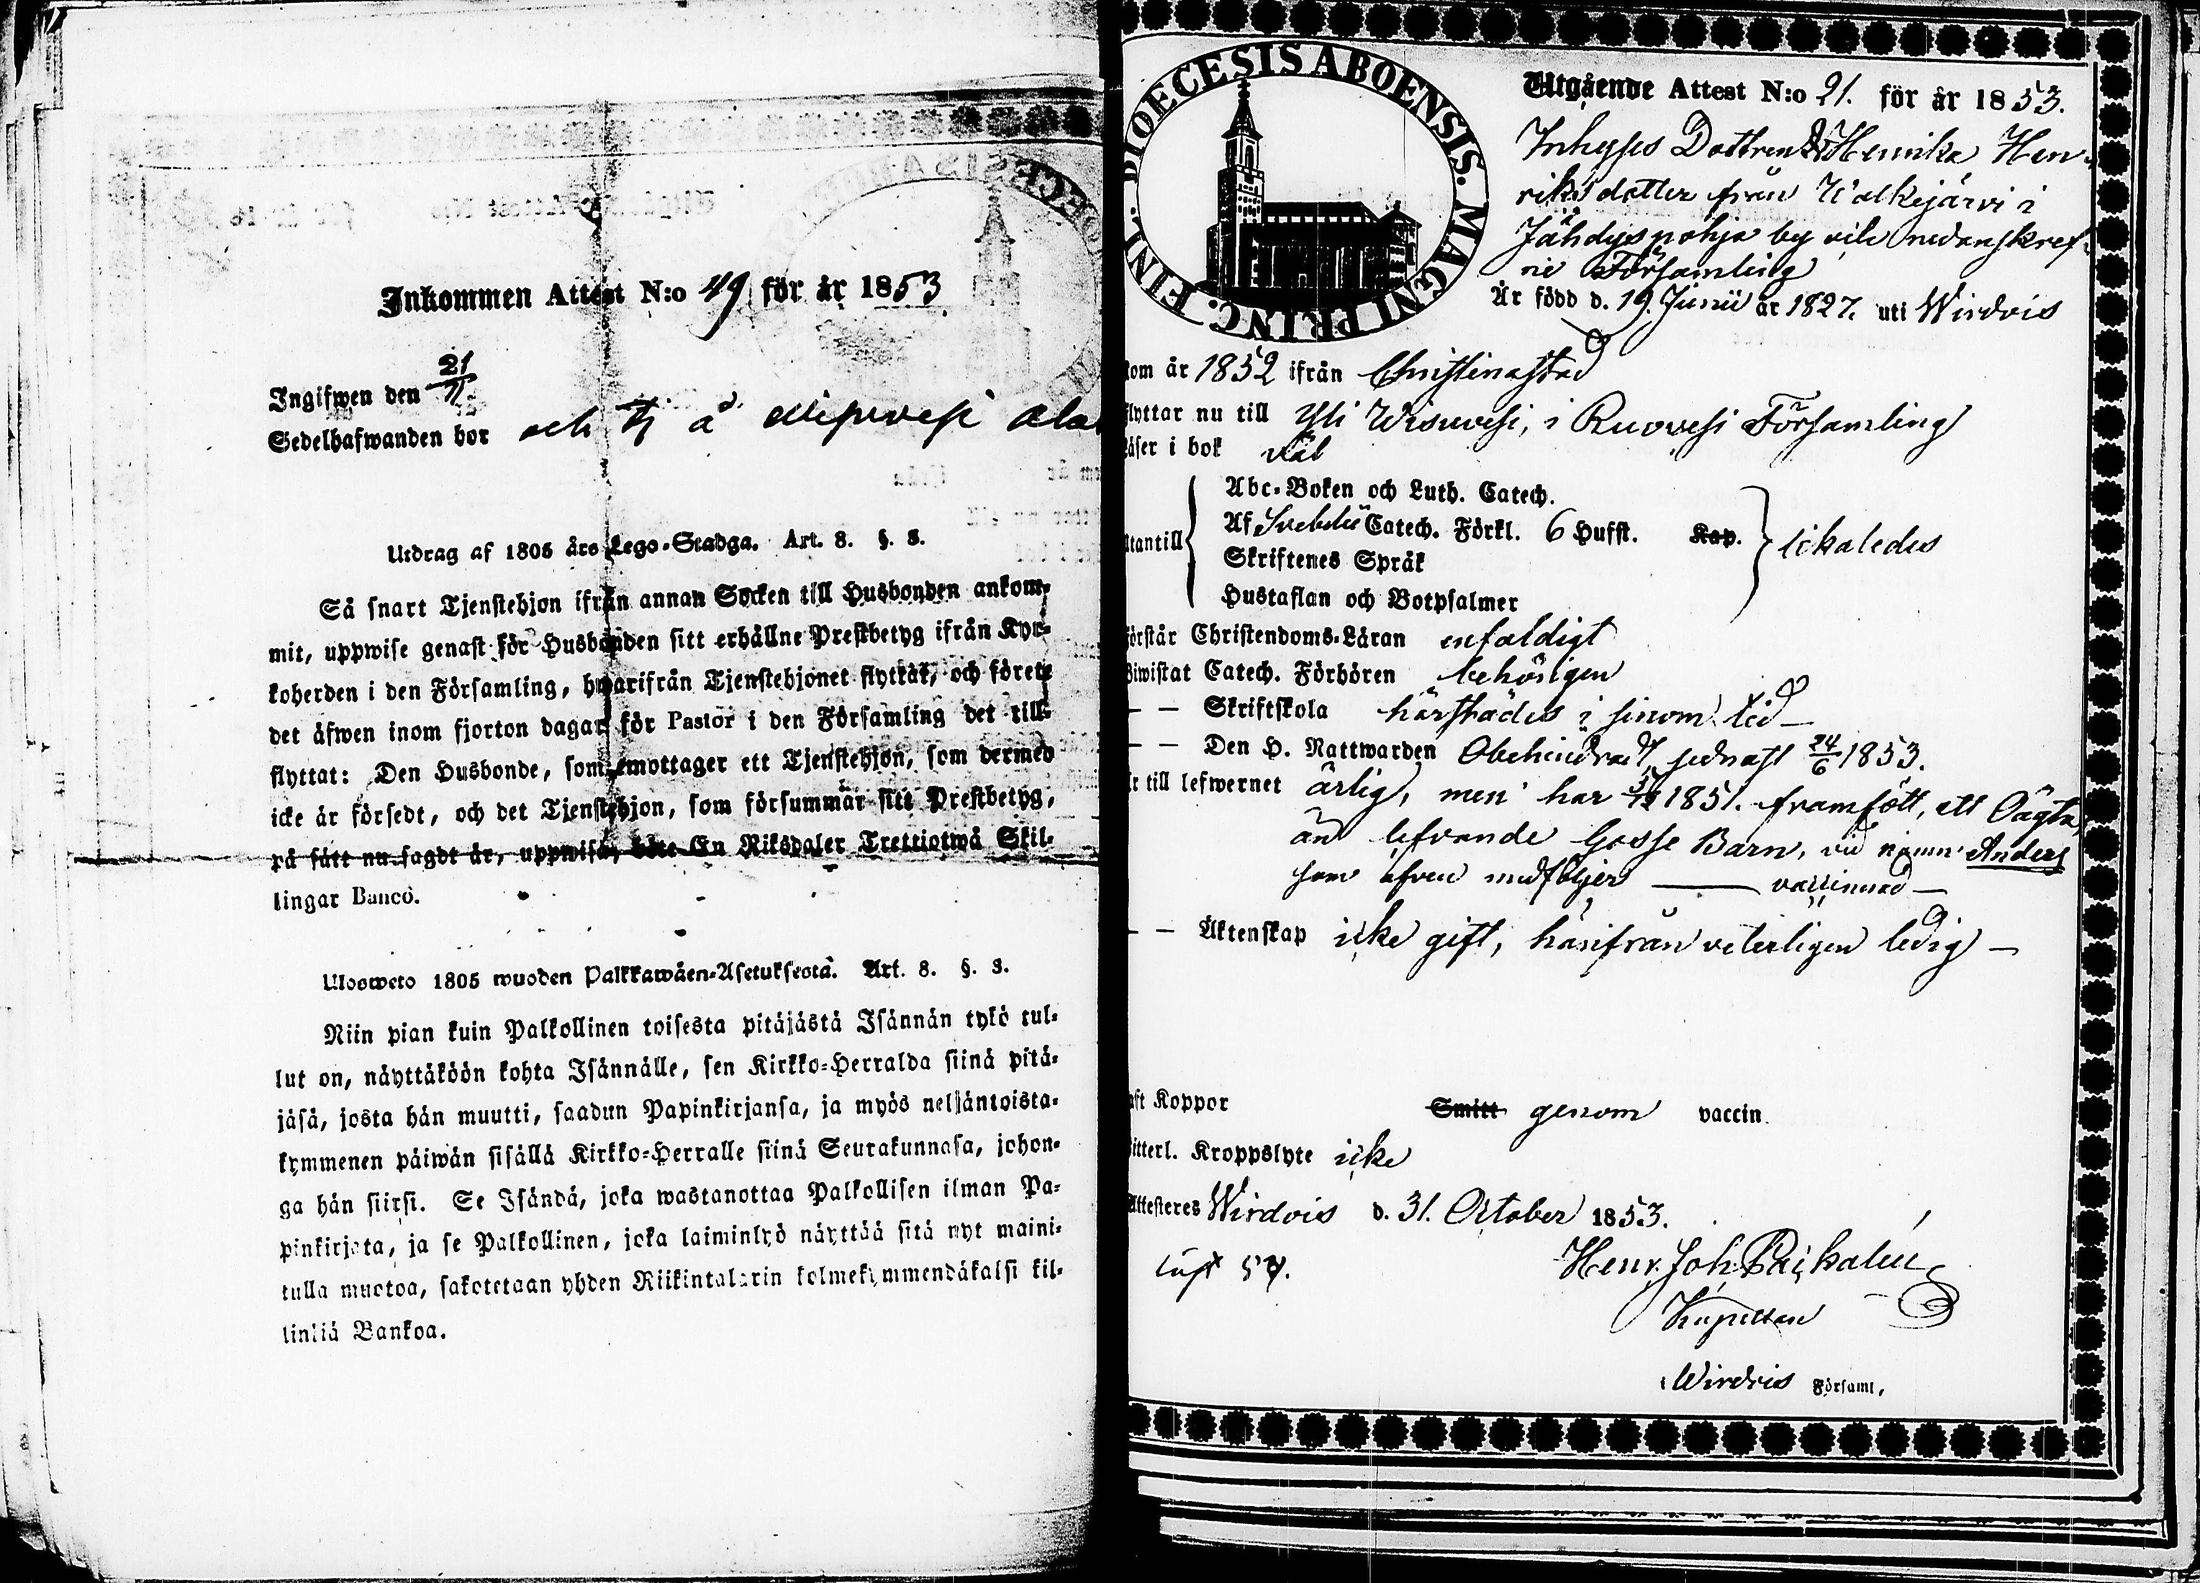 Inkommen Attest N:o 49 för år 1853
Ingifwen den 21/11
Sedelhafwanden bor och tj å
Utdrag af 1805 års Lego-Stadga. Art. 8. §. 3.
Så snart Tjenstehjon ifrån annan Socken till Husbonden ankom-
mit, uppwise genast för Husbonden sitt erhållne Prestbetyg ifrån Kyr-
koherden i den Församling, hwarifrån Tjenstehjonet flyttat, och förete
det äfwen inom fjorton dagar för Pastor i den Församling det till-
flyttat: Den Husbonde, som emottager ett Tjenstehjon, som dermed
icke är försedt, och det Tjenstehjon, som försummar sitt Prestbetyg,
på sätt nu sagdt är, uppwisa, böte En Riksdaler Trettiotwå Skil-
lingar Banco.
Ulosweto 1805 wuoden Palkkawäen-Asetuksesta. Art. 8. §. 3.
Niin pian kuin Palkollinen toisesta pitäjästä Isännän tykö tul-
lut on, näyttäköön kohta Isännälle, sen Kirkko-Herralda siinä pitä-
jäsä, josta hän muutti, saadun Papinkirjansa, ja myös neljäntoista-
kymmenen päiwän sisällä Kirkko-Herralle siinä Seurakunnasa, johon-
ga hän siirsi. Se Isändä, joka wastanottaa Palkollisen ilman Pa-
pinkirjata, ja se Palkollinen, joka laiminlyö näyttää sitä nyt maini-
tulla muotoa, sakotetaan yhden Riikintalarin kolmekymmendäkaksi kil-
linkiä Bankoa.
FINL. DIOECESIS ABOENSIS. MAGNI PRINC.
Utgående Attest N:o 21. för år 1853.
Inhyses Dottren Henrika Hen-
riksdotter från Walkejärvi i
Jähdyspohja by och nedanskref-
ne Församling
Är född d. 19. Junii år 1827. uti Wirdois
kom år 1852 ifrån Christinastad
flyttar nu till Yli Wisuvesi, i Ruovesi Församling
läser i bok väl
Abc-Boken och Luth. Catech.
utantill Af Svebelii Catech. Förkl. 6 Hufst. Kap. likaledes
Skriftenes Språk
Hustaflan och Botpsalmer
förstår Christendoms-Läran enfaldigt
Biwistat Catech. Förhören behörigen
— — Skriftskola härstädes i sinom tid —
— — Den H. Nattwarden Obehindradt, sednast 24/6 1853.
är till lefwernet ärlig, men har 1851. framfödt, ett Oägta,
än lefvande Gosse Barn, vid namn Anders
som äfven medföljer — vaccinerad —
— — Äktenskap icke gift, härifrån veterligen ledig —
haft Koppor Smitt genom vaccin.
Witterl. Kroppslyte icke
Attesteras Wirdois d. 31. October 1853.
Henr. Joh.
Kapellan
i Wirdois Församl,